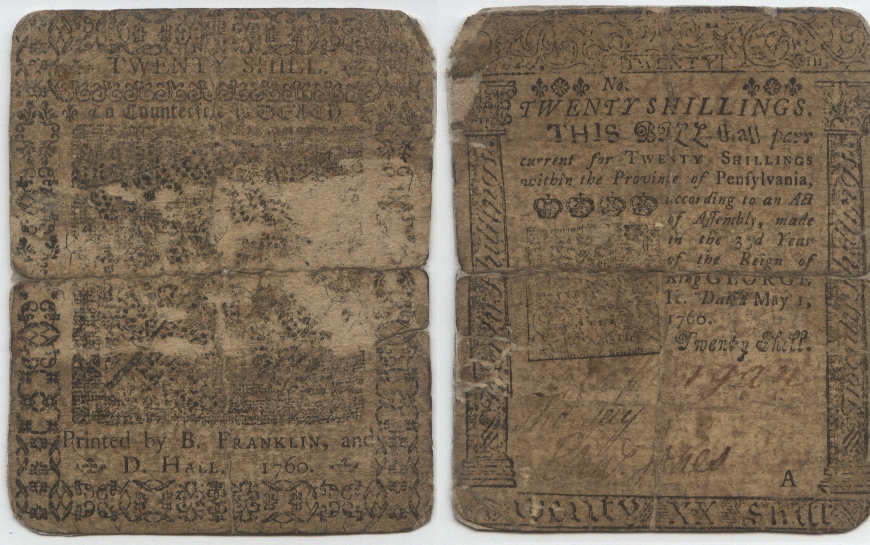 TWENTY SHILL.
To Counterfeit is DEATH
Printed by B. FRANKLIN, and
D. HALL. 1760.
TWENTY
No.
TWENTY SHILLINGS.
THIS BILL shall pass
current for TWENTY SHILLINGS
within the Province of Pensylvania,
according to an Act
of Assembly, made
in the 3d Year
of the Reign of
King GEORGE
IId. Dated May 1,
1760.
Twenty Shill.
Jones
A
wenty XX Shill